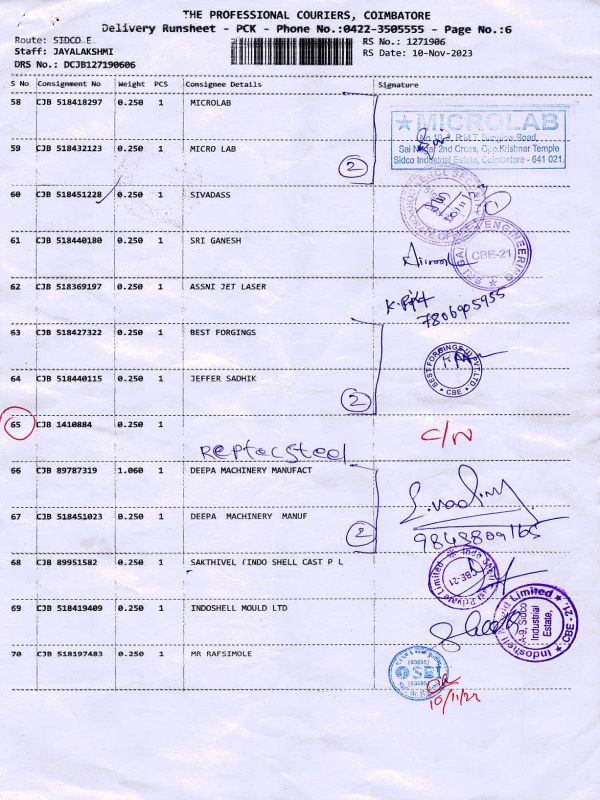 THE PROFESSIONAL COURIERS, COIMBATORE
Delivery Runsheet - PCK - Phone No.:0422-3505555 - Page No.:6
Route: SIDCO E
RS No.: 1271906
Staff: JAYALAKSHMI
RS Date: 10-Nov-2023
DRS No.: DCJB127190606
S No Consignment No Weight PCS Consignee Details Signature
58 CJB 518418297 0.250 1 MICROLAB
MICROLAB
Sai Nagar 2nd Cross, Opp.Krishnar Temple
Sidco Industrial Estate, Coimbatore - 641 021.
59 CJB 518432123 0.250 1 MICRO LAB
2
60 CJB 518451228 0.250 1 SIVADASS
1
61 CJB 518440180 0.250 1 SRI GANESH
SRI GANESH ENGINEERING
CBE-21
62 CJB 518369197 0.250 1 ASSNI JET LASER
7806905955
63 CJB 518427322 0.250 1 BEST FORGINGS
BEST FORGINGS (I) PVT LTD
CBE
64 CJB 518440115 0.250 1 JEFFER SADHIK
2
65 CJB 1410884 0.250 1
C/N
66 CJB 89787319 1.060 1 DEEPA MACHINERY MANUFACT
67 CJB 518451023 0.250 1 DEEPA MACHINERY MANUF
2
9843809165
68 CJB 89951582 0.250 1 SAKTHIVEL (INDO SHELL CAST P L
Indo Shell Cast Private Limited
CBE-21
69 CJB 518419409 0.250 1 INDOSHELL MOULD LTD
Indoshell Mould Limited
CBE - 21.
A-9, Sidco
Industrial
Estate,
70 CJB 518197483 0.250 1 MR RAFSIMOLE
SBI
10/11/23